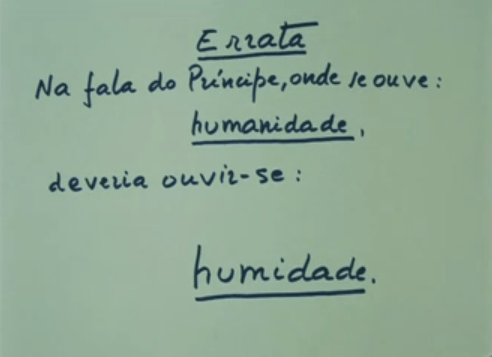 Errata
Na fala do Príncipe, onde se ouve:
humanidade,
deveria ouvir-se:
humidade.